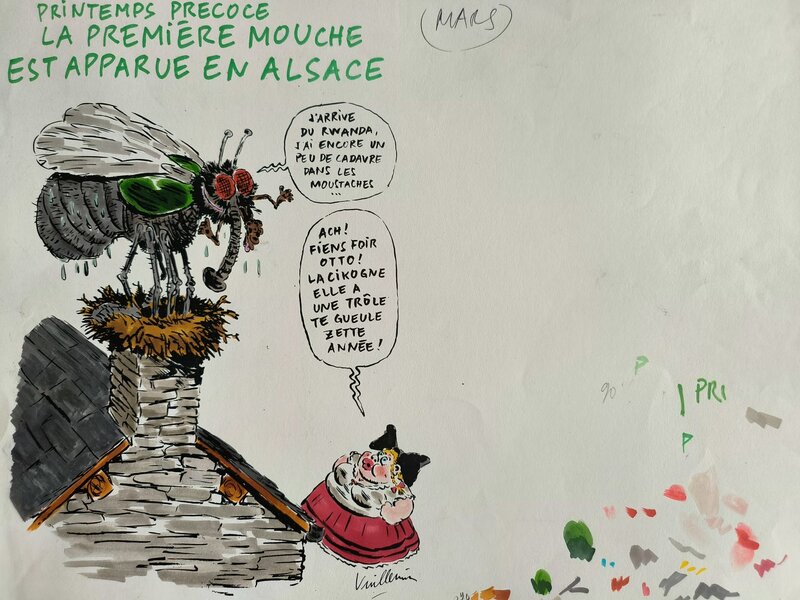 PRINTEMPS PRECOCE
LA PREMIÈRE MOUCHE
EST APPARUE EN ALSACE
(MARS)
J'ARRIVE
DU RWANDA,
J'AI ENCORE UN
PEU DE CADAVRE
DANS LES
MOUSTACHES
...
ACH!
FIENS FOIR
OTTO!
LA CIKOGNE
ELLE A
UNE TRÔLE
TE GUEULE
ZETTE
ANNÉE!
P
90
PRI
P
Vuillemin